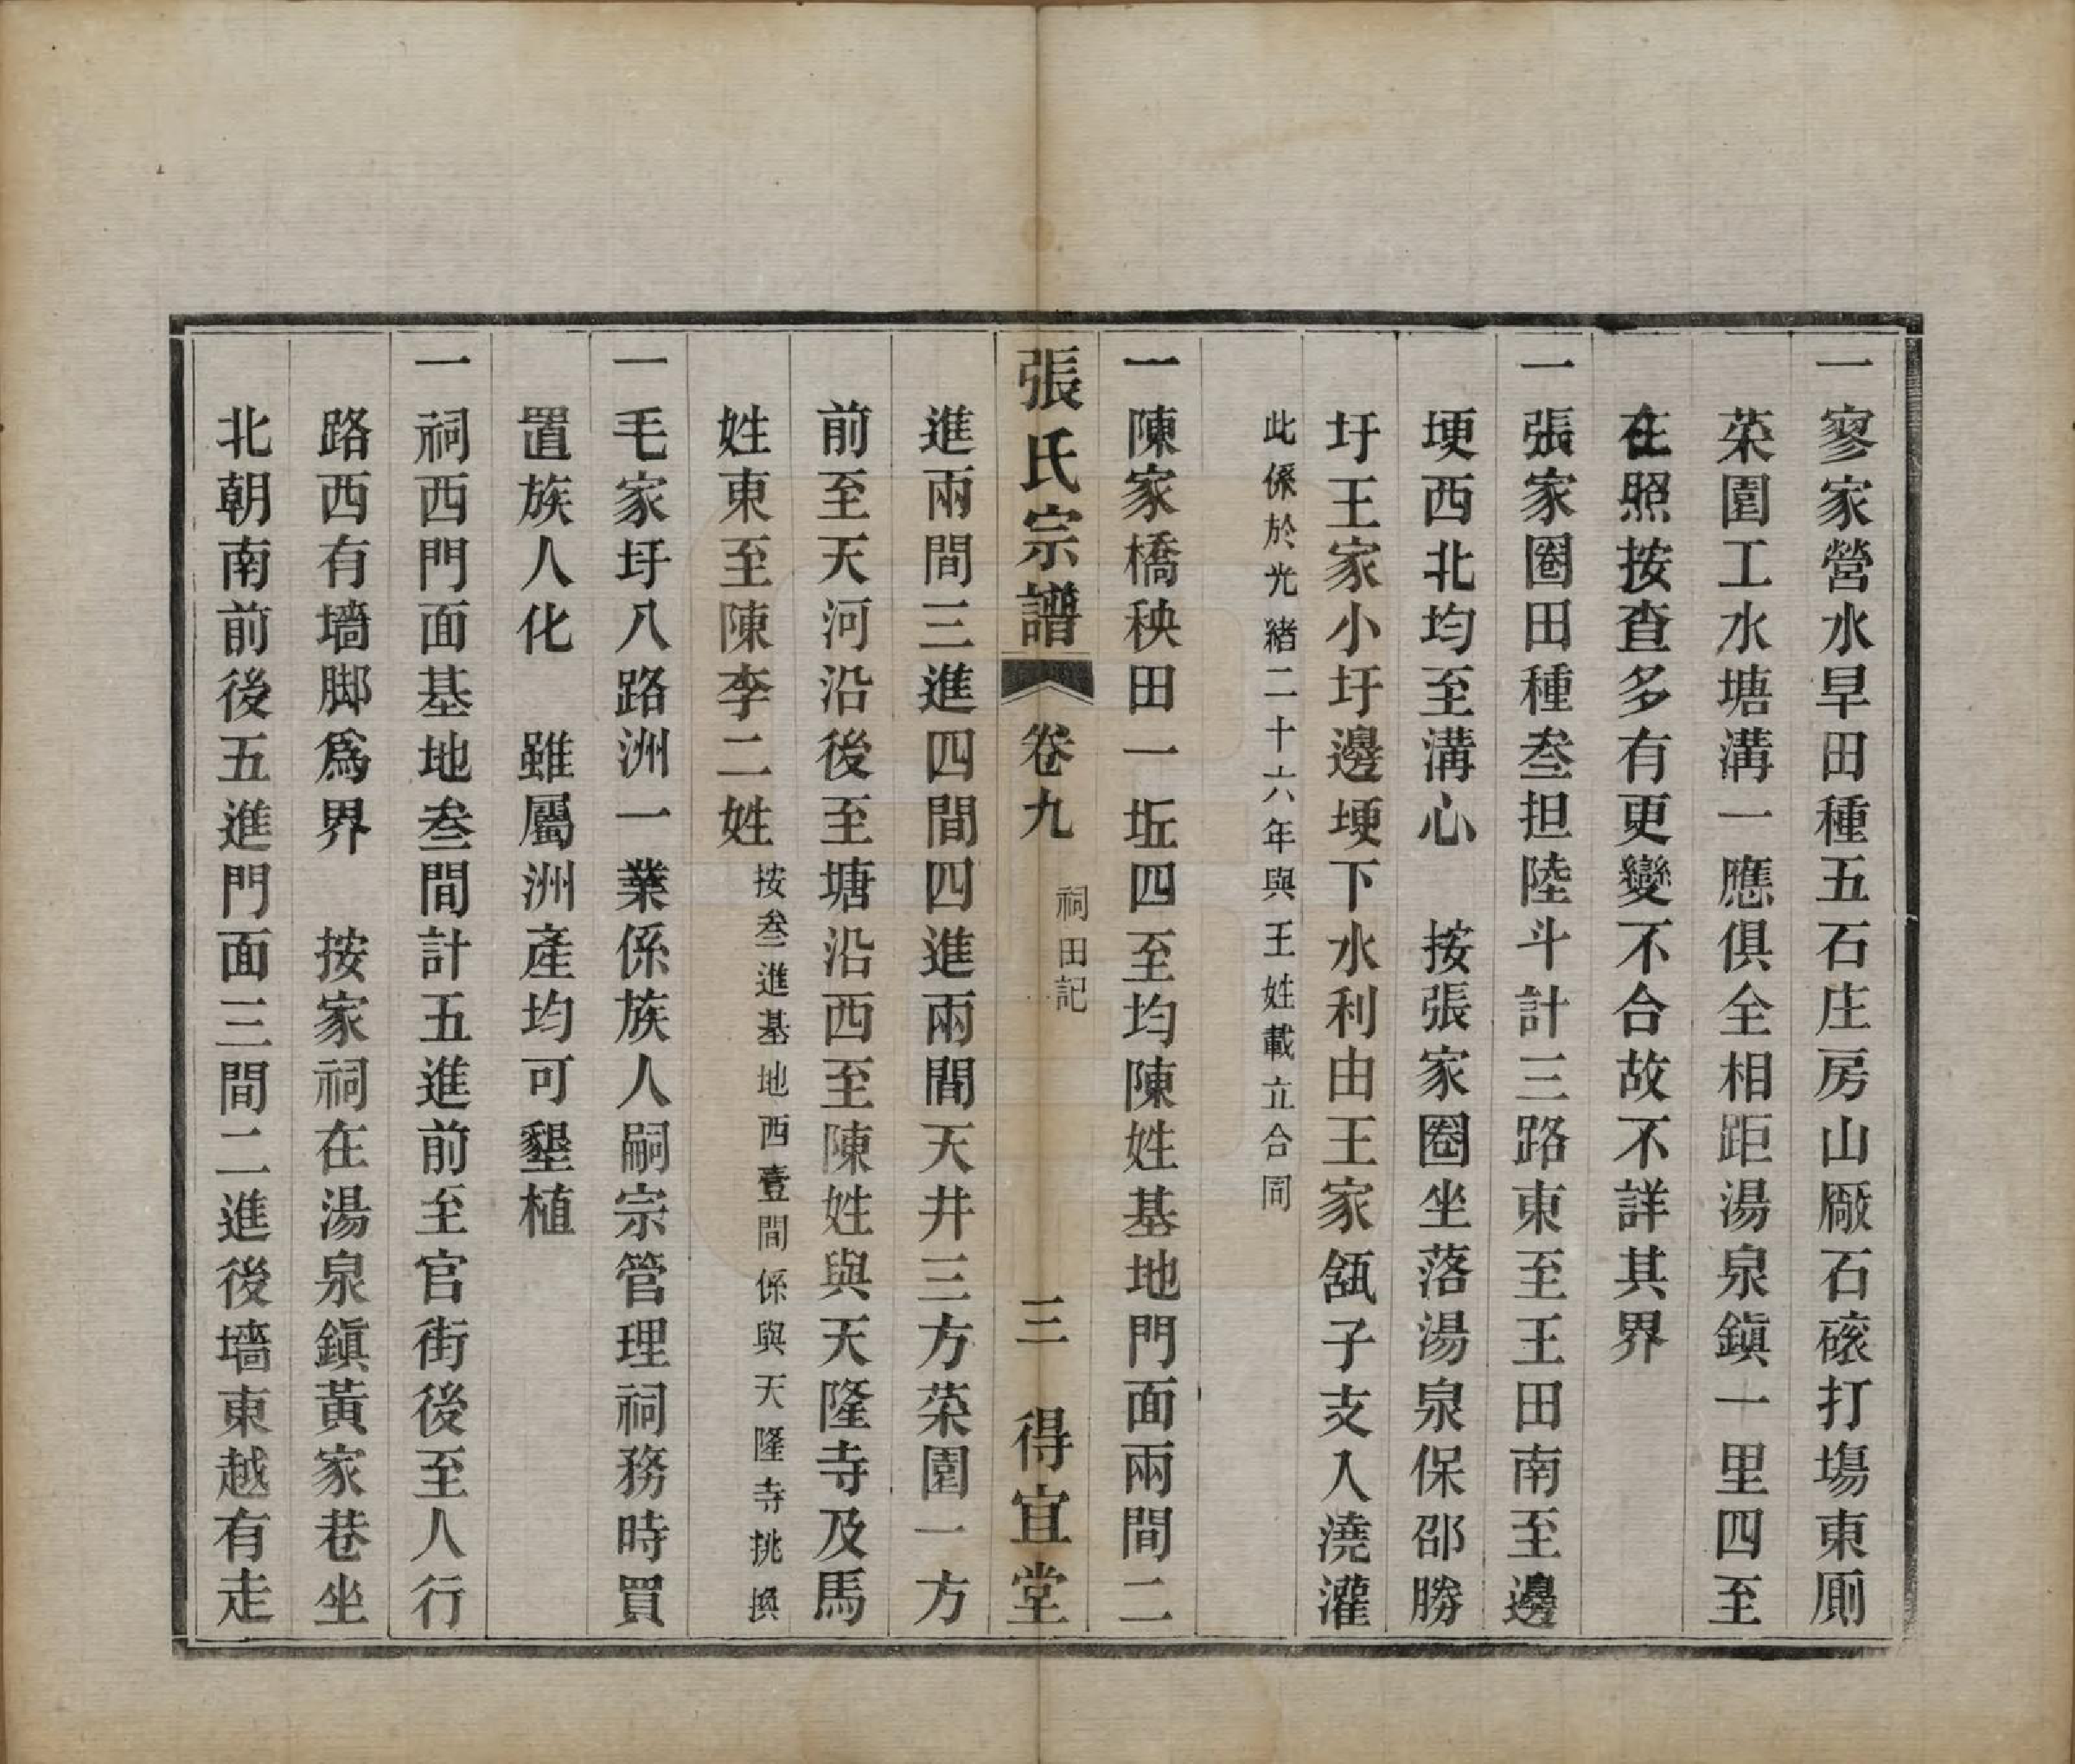 一寥家營水旱田種五石庄房山厰石磙打塲東厠
菜園工水塘溝一應俱全相距湯泉鎭一里四至
在照按查多有更變不合故不詳其界
一張家圈田種叁担陸斗計三路東至王田南至邊
埂西北均至溝心　按張家圈坐落湯泉保邵勝
圩王家小圩邊埂下水利由王家瓴子支入澆灌
此係於光緒二十六年與王姓載立合同
一陳家橋秧田一坵四至均陳姓基地門面兩間二
張氏宗譜　卷九　祠田記　三　得宜堂
進兩間三進四間四進兩間天井三方菜園一方
前至天河沿後至塘沿西至陳姓與天隆寺及馬
姓東至陳李二姓按叁進基地西壹間係與天隆寺挑換
一毛家圩八路洲一業係族人嗣宗管理祠務時買
置族人化　雖屬洲產均可墾植
一祠西門面基地叁間計五進前至官街後至人行
路西有墻脚爲界　按家祠在湯泉鎭黃家巷坐
北朝南前後五進門面三間二進後墻東越有走